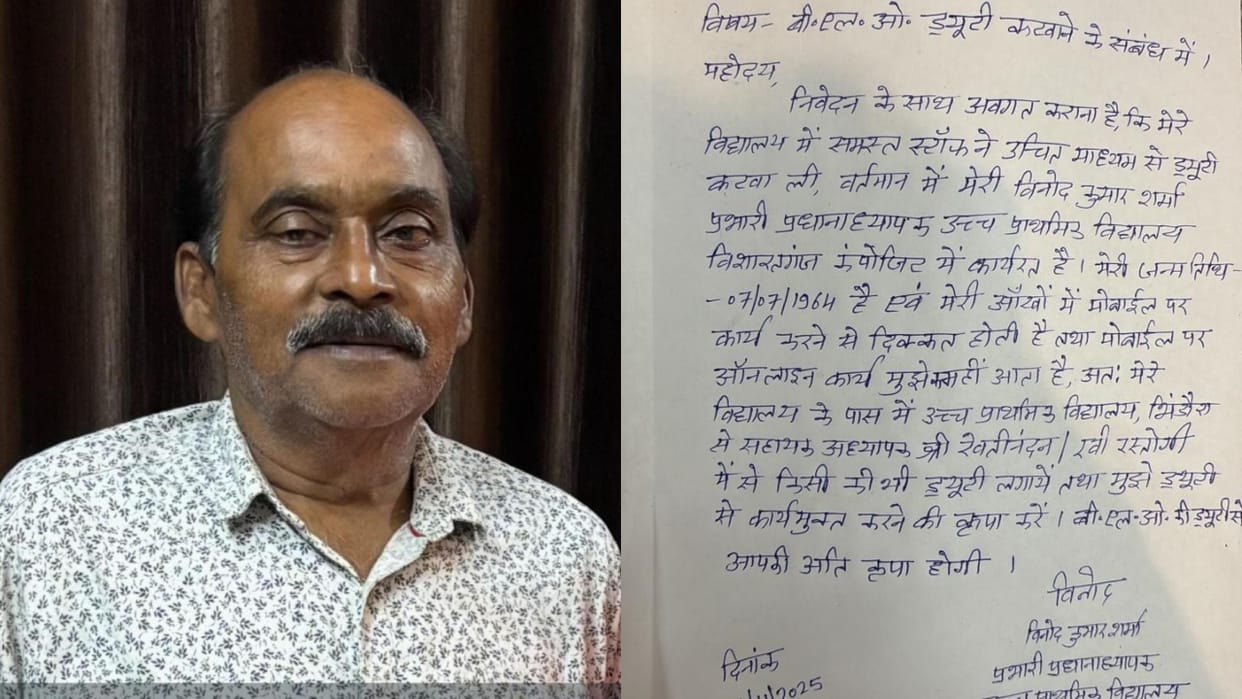 विषय- बी॰एल॰ओ॰ ड्यूटी कटवाने के संबंध में।
महोदय,
निवेदन के साथ अवगत कराना है, कि मेरे
विद्यालय में समस्त स्टॉफ ने उचित माध्यम से ड्यूटी
कटवा ली, वर्तमान में मेरी विनोद कुमार शर्मा
प्रभारी प्रधानाध्यापक उच्च प्राथमिक विद्यालय
विशारतगंज कंपोजिट में कार्यरत है। मेरी जन्म तिथि-
-07/07/1964 है एवं मेरी ऑंखों में मोबाईल पर
कार्य करने से दिक्कत होती है तथा मोबाईल पर
ऑनलाइन कार्य मुझे नहीं आता है, अतः मेरे
विद्यालय के पास में उच्च प्राथमिक विद्यालय,
से सहायक अध्यापक श्री रेवतीनंदन / रवी रस्तोगी
में से किसी की भी ड्यूटी लगायें तथा मुझे ड्यूटी
से कार्यमुक्त करने की कृपा करें। बी॰एल॰ओ॰ की ड्यूटी से
आपकी अति कृपा होगी ।
विनोद
विनोद कुमार शर्मा
दिनांक
प्रभारी प्रधानाध्यापक
/2025
प्राथमिक विद्यालय